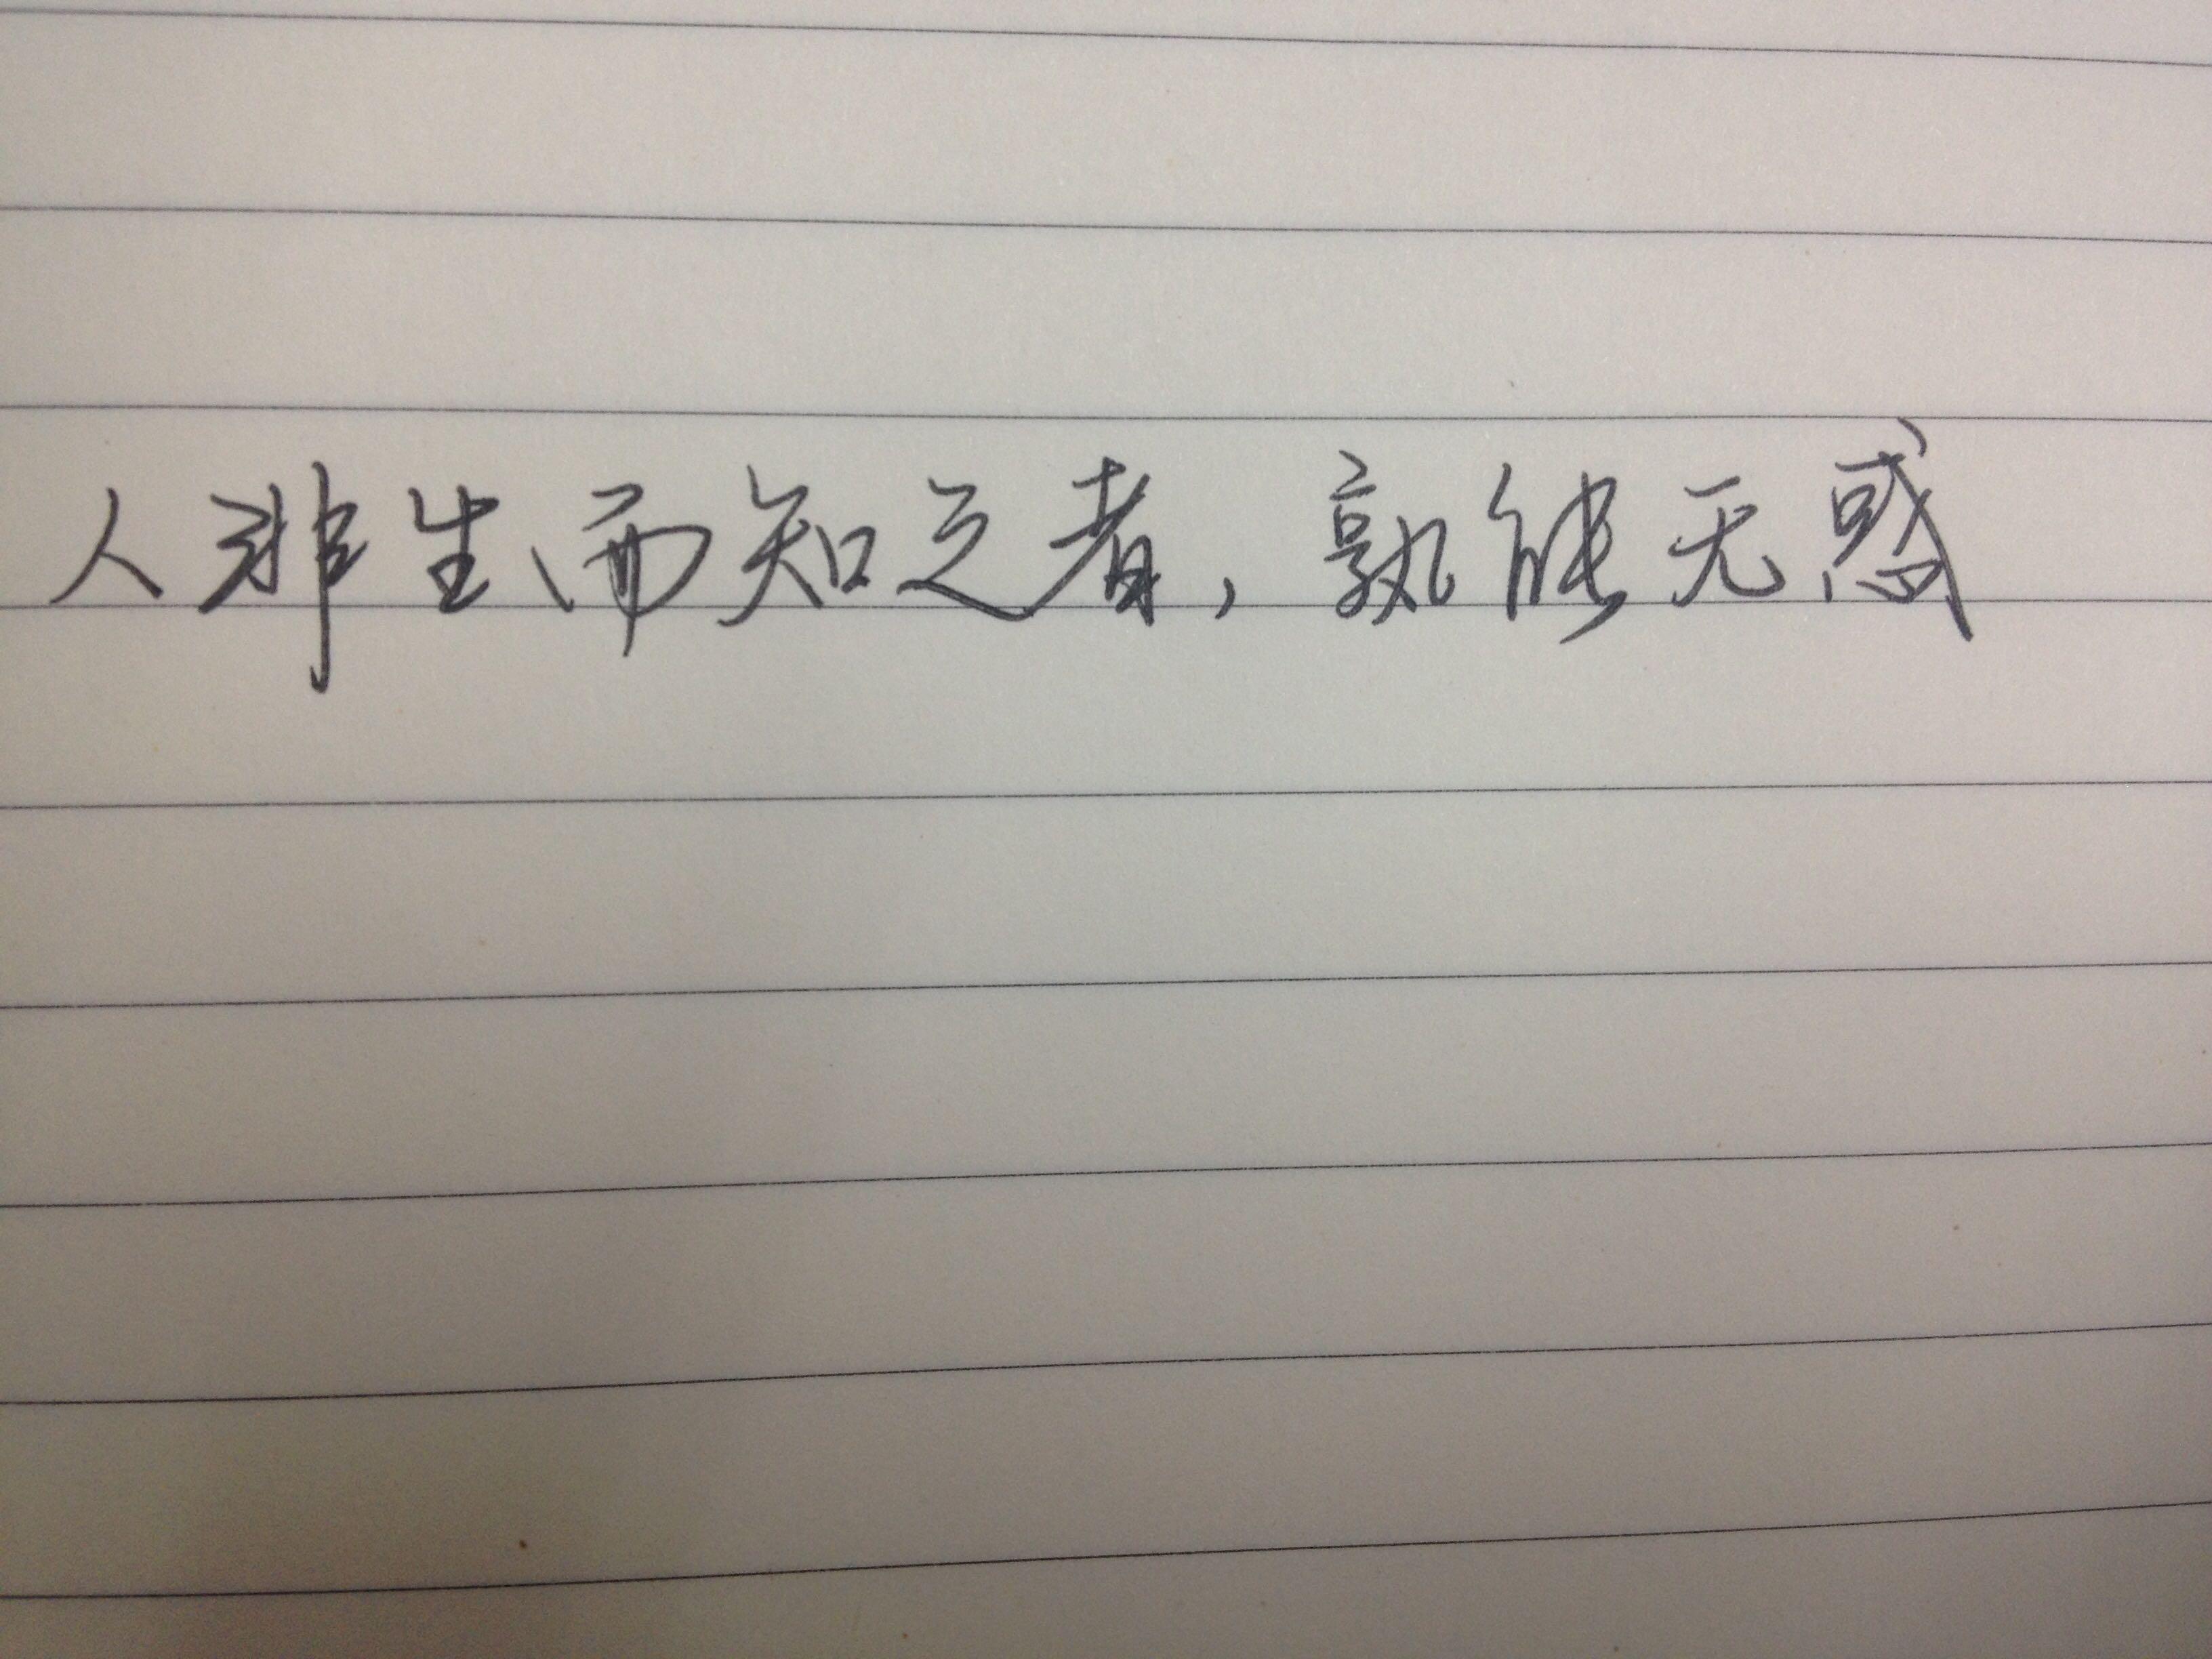 人非生而知之者，孰能无惑